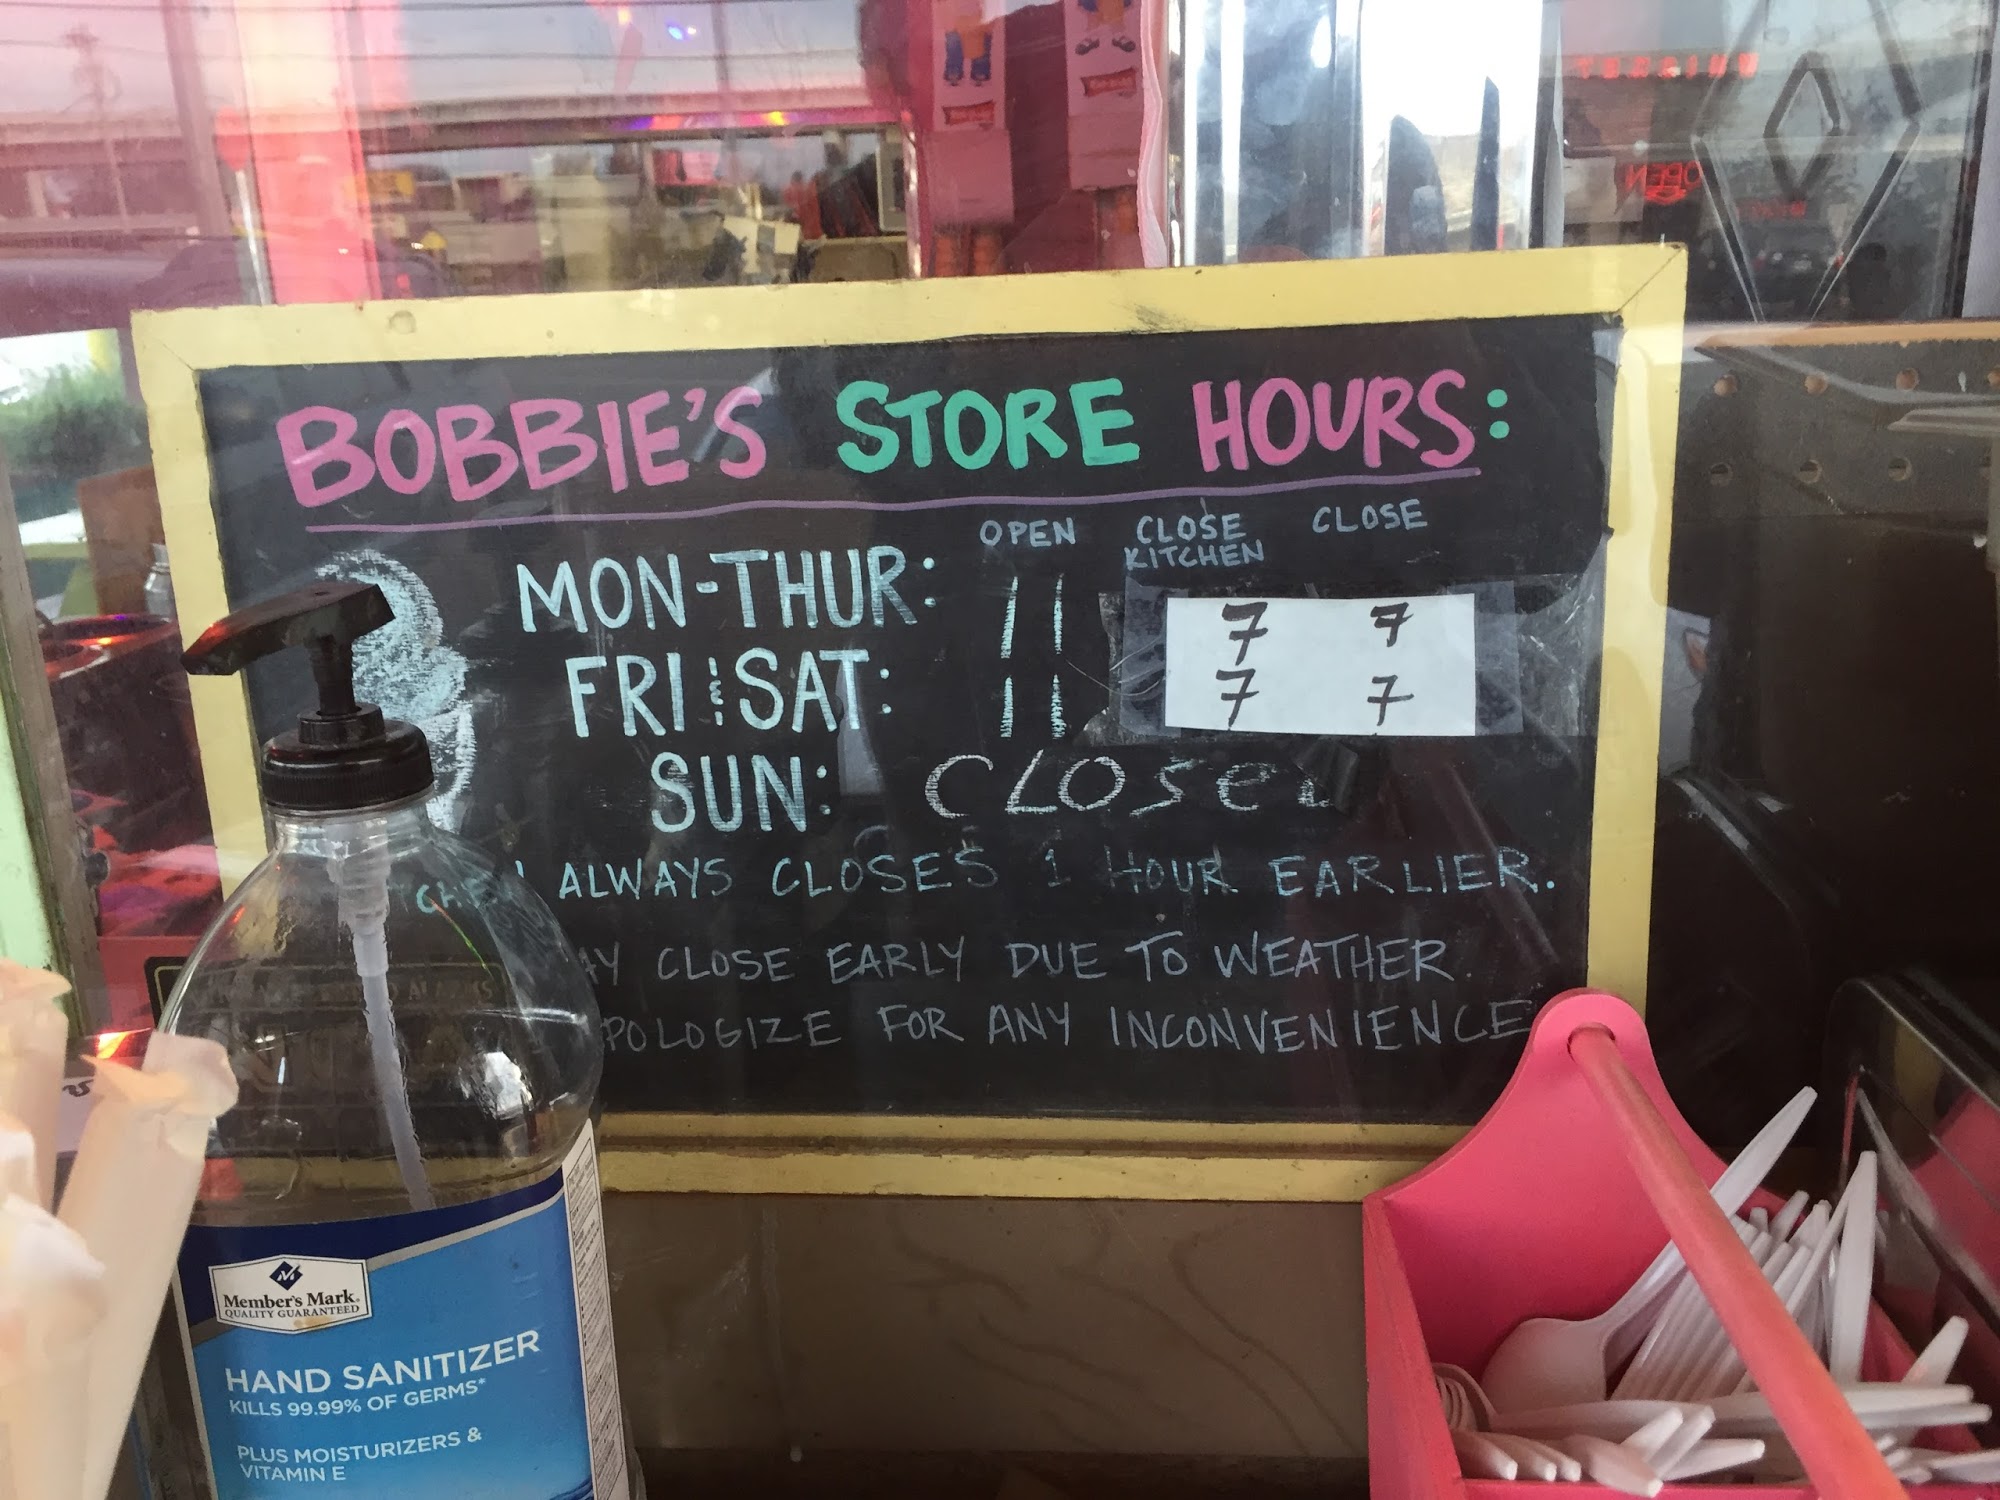 BOBBIE'S STORE HOURS:
OPEN CLOSE KITCHEN CLOSE
MON-THUR: 11 7 7
FRI & SAT: 11 7 7
SUN: CLOSED
ALWAYS CLOSES 1 HOUR EARLIER.
CLOSE EARLY DUE TO WEATHER.
FOR ANY INCONVENIENCE
Member's Mark
QUALITY GUARANTEED
HAND SANITIZER
KILLS 99.99% OF GERMS*
PLUS MOISTURIZERS &
VITAMIN E
OPEN